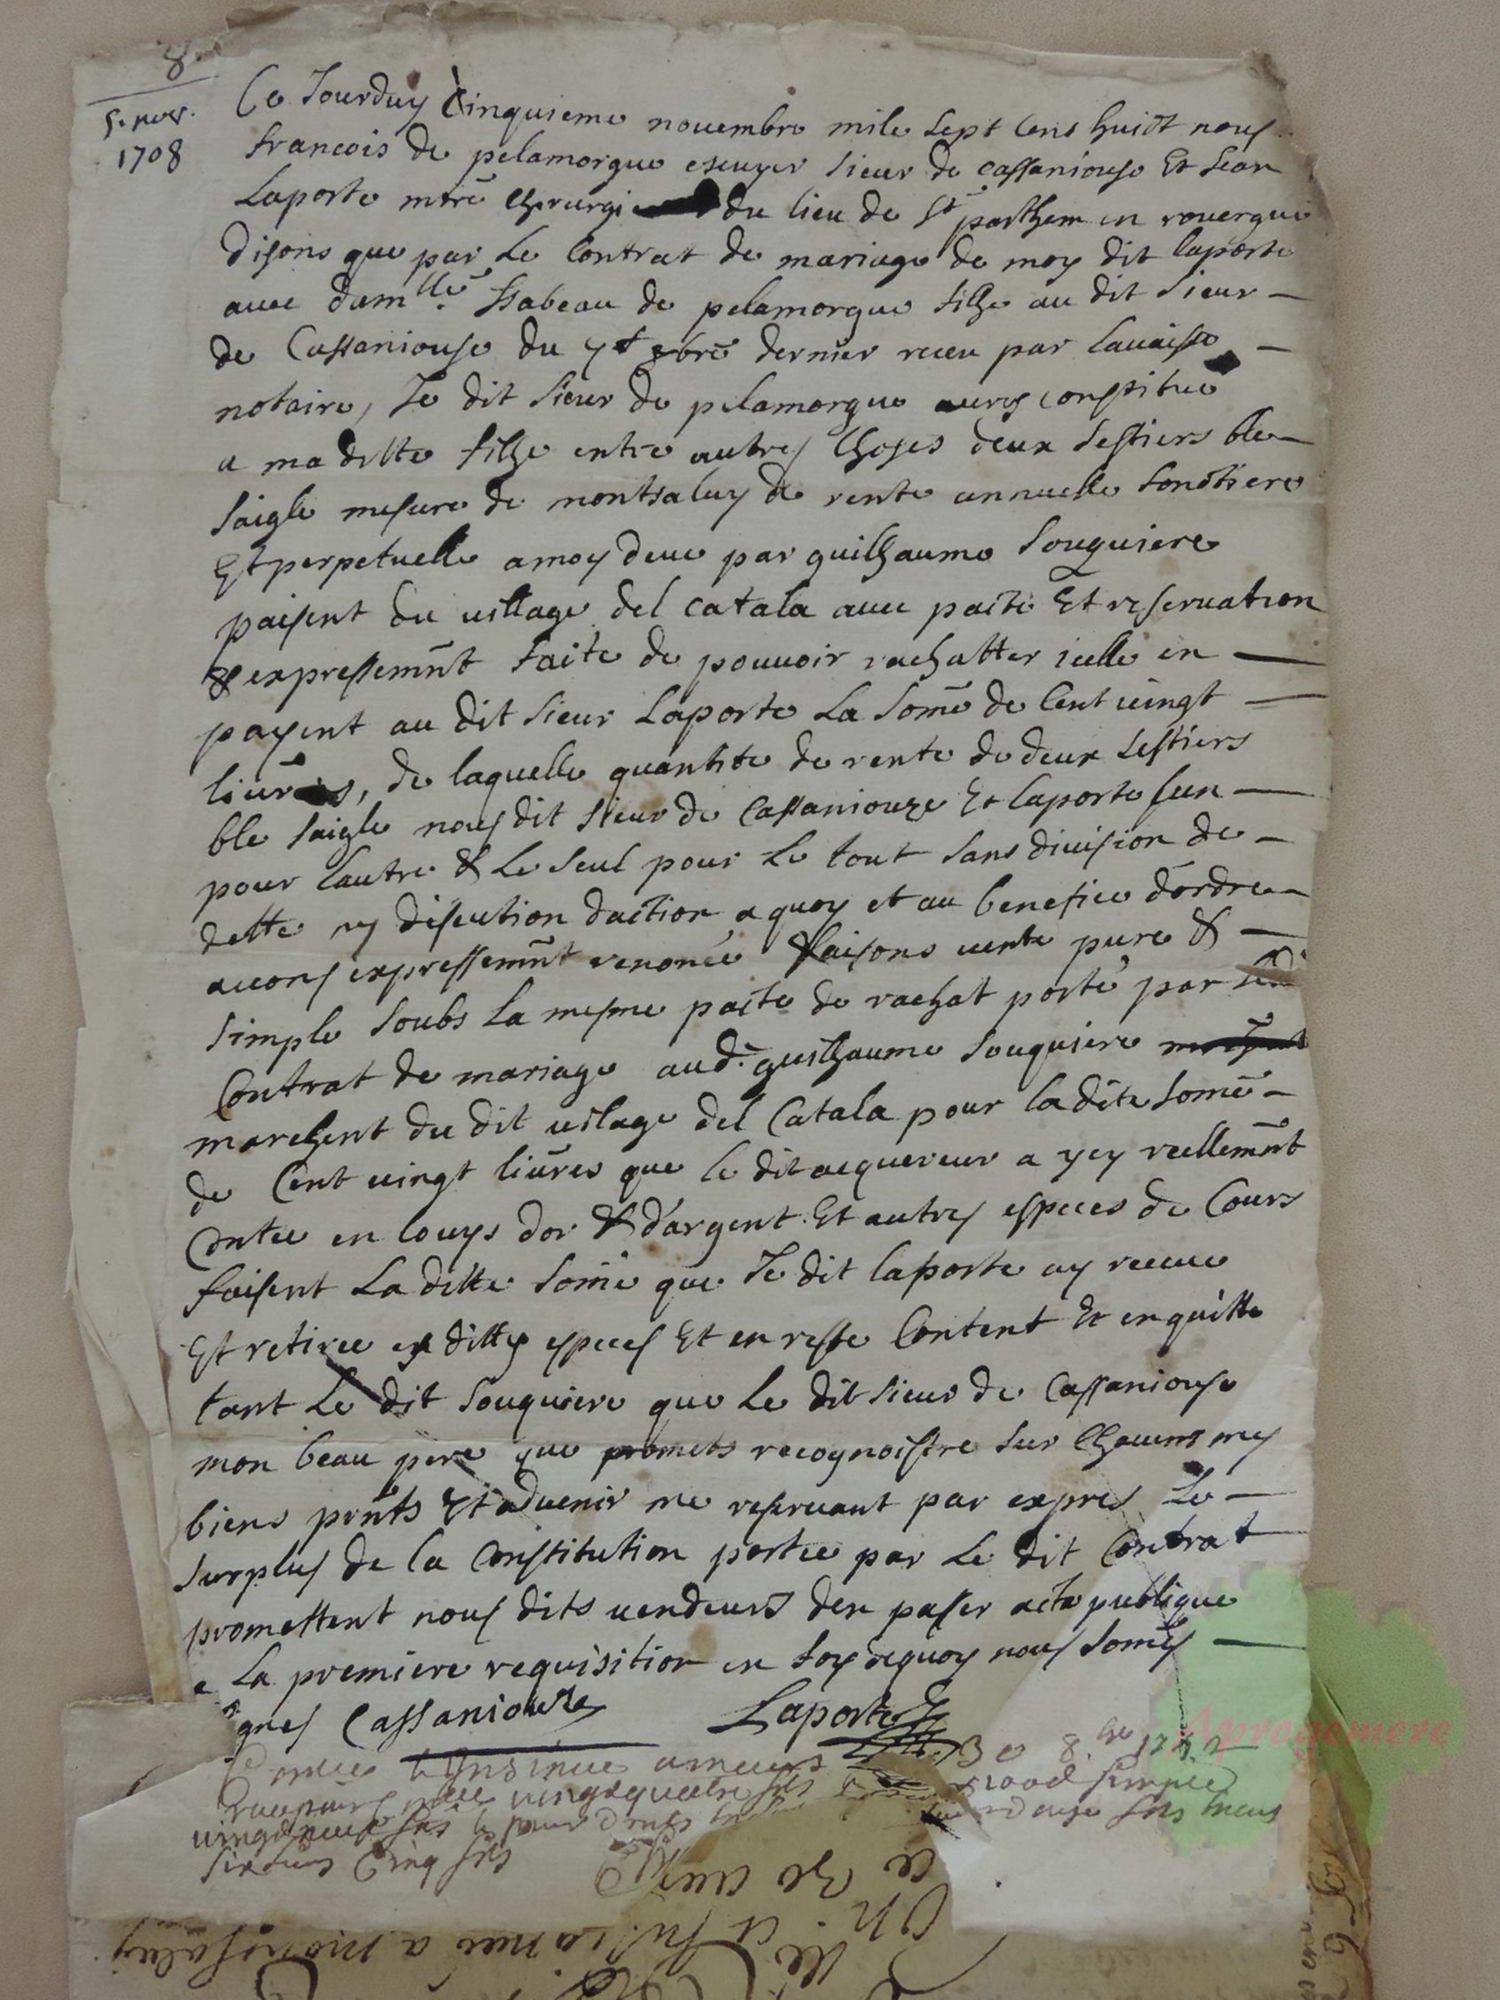 8
5. nov.
1708
Ce Jourduy Cinquieme novembre mile sept Cens huict nous
francois de pelamorgue escuyer sieur de Cassaniouse Et Jean
Laporte mtre Chirurgi du lieu de St parthem en rouergue
disons que par Le Contrat de mariage de moy dit laporte
avec damlle Isabeau de pelamorgue filhe au dit sieur
de Cassaniouse du bre dernier receu par Lavaisse
notaire, Je dit sieur de pelamorgue aurois constitué
a ma ditte filhe entre autres Choses deux sestiers ble
saigle mesure de montsalvy de rente annuelle fonctiere
Et perpetuelle a moy deue par guilhaume Souquiere
paisent du village del catala avec pacte Et reservation
expressemnt faite de pouvoir rachatter icelle en
payent au dit sieur Laporte La some de Cent vingt
livres, de laquelle quantite de rente de deux sestiers
ble saigle nous dit sieur de Cassaniouze Et laporte lun
pour lautre & Le seul pour Le tout sans division de
dette ny discution daction a quoy et au benefice dordre
avons expressemnt renoncé faisons vente pure &
simple soubs La mesme pacte de rachat porté par
Contrat de mariage aud. guilhaume Souquiere
marchent du dit vilage del Catala pour la dite some
de Cent vingt livres que le dit acquereur a ycy reellemnt
Contee en louys dor & dargent Et autres especes de Cours
faisent La ditte some que Je dit laporte ay receue
Et retiree es dittes especes Et en reste Content Et en quitte
tant Le dit Souquiere que Le dit sieur de Cassaniouse
mon beau pere que promets recognoistre sur Chacuns mes
biens prnts Et advenir me reservant par expres Le
surplus de la Constitution portee par Le dit Contrat
promettent nous dits vendeurs den passer acte publique
a La premiere requisition en foy dequoy nous somes
signes Cassaniouze Laporte
30 8.bre
vingtquatre sols
Cinq sols
Aprogemere